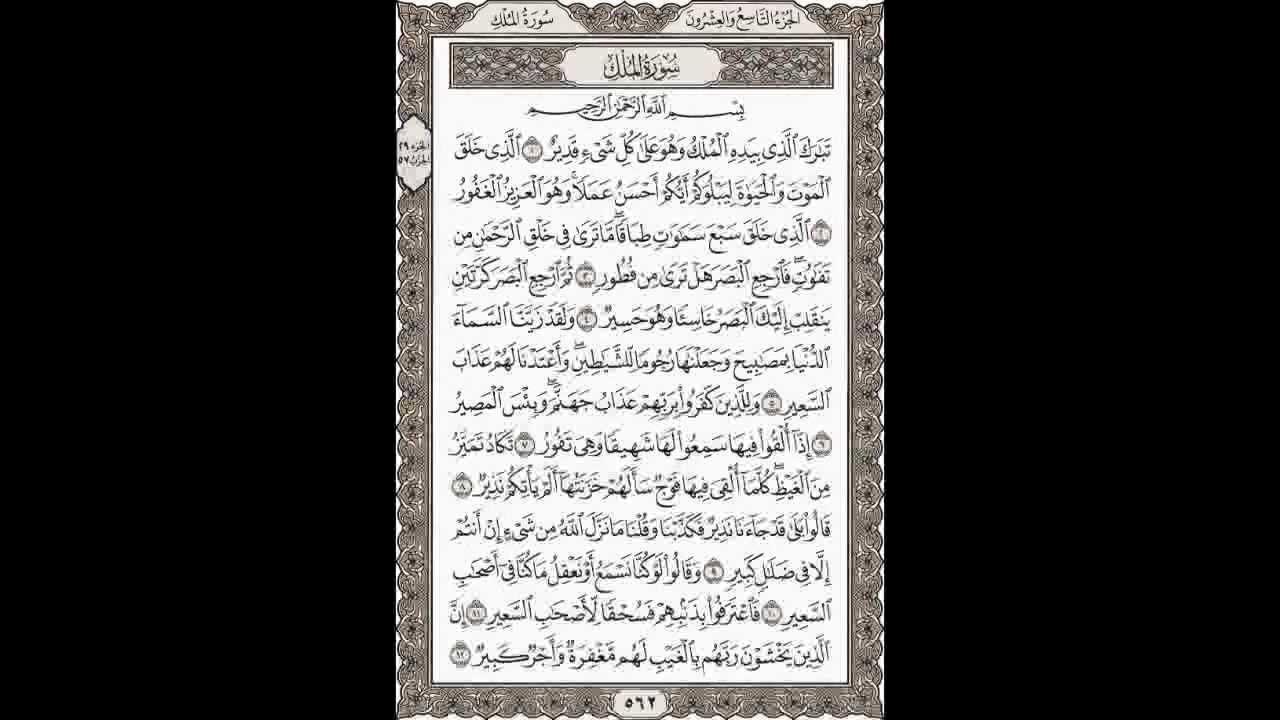 الجزء التاسع والعشرون
سورة الملك
سُورَةُ المُلْكِ
بِسْمِ ٱللَّهِ ٱلرَّحْمَٰنِ ٱلرَّحِيمِ
تَبَٰرَكَ ٱلَّذِى بِيَدِهِ ٱلْمُلْكُ وَهُوَ عَلَىٰ كُلِّ شَىْءٍ قَدِيرٌ ١ ٱلَّذِى خَلَقَ
ٱلْمَوْتَ وَٱلْحَيَوٰةَ لِيَبْلُوَكُمْ أَيُّكُمْ أَحْسَنُ عَمَلًا ۚ وَهُوَ ٱلْعَزِيزُ ٱلْغَفُورُ
٢ ٱلَّذِى خَلَقَ سَبْعَ سَمَٰوَٰتٍ طِبَاقًا ۖ مَّا تَرَىٰ فِى خَلْقِ ٱلرَّحْمَٰنِ مِن
تَفَٰوُتٍ ۖ فَٱرْجِعِ ٱلْبَصَرَ هَلْ تَرَىٰ مِن فُطُورٍ ٣ ثُمَّ ٱرْجِعِ ٱلْبَصَرَ كَرَّتَيْنِ
يَنقَلِبْ إِلَيْكَ ٱلْبَصَرُ خَاسِئًا وَهُوَ حَسِيرٌ ٤ وَلَقَدْ زَيَّنَّا ٱلسَّمَآءَ
ٱلدُّنْيَا بِمَصَٰبِيحَ وَجَعَلْنَٰهَا رُجُومًا لِّلشَّيَٰطِينِ ۖ وَأَعْتَدْنَا لَهُمْ عَذَابَ
ٱلسَّعِيرِ ٥ وَلِلَّذِينَ كَفَرُوا۟ بِرَبِّهِمْ عَذَابُ جَهَنَّمَ ۖ وَبِئْسَ ٱلْمَصِيرُ
٦ إِذَآ أُلْقُوا۟ فِيهَا سَمِعُوا۟ لَهَا شَهِيقًا وَهِىَ تَفُورُ ٧ تَكَادُ تَمَيَّزُ
مِنَ ٱلْغَيْظِ ۖ كُلَّمَآ أُلْقِىَ فِيهَا فَوْجٌ سَأَلَهُمْ خَزَنَتُهَآ أَلَمْ يَأْتِكُمْ نَذِيرٌ ٨
قَالُوا۟ بَلَىٰ قَدْ جَآءَنَا نَذِيرٌ فَكَذَّبْنَا وَقُلْنَا مَا نَزَّلَ ٱللَّهُ مِن شَىْءٍ إِنْ أَنتُمْ
إِلَّا فِى ضَلَٰلٍ كَبِيرٍ ٩ وَقَالُوا۟ لَوْ كُنَّا نَسْمَعُ أَوْ نَعْقِلُ مَا كُنَّا فِىٓ أَصْحَٰبِ
ٱلسَّعِيرِ ١٠ فَٱعْتَرَفُوا۟ بِذَنۢبِهِمْ فَسُحْقًا لِّأَصْحَٰبِ ٱلسَّعِيرِ ١١ إِنَّ
ٱلَّذِينَ يَخْشَوْنَ رَبَّهُم بِٱلْغَيْبِ لَهُم مَّغْفِرَةٌ وَأَجْرٌ كَبِيرٌ ١٢
الجزء ٢٩
الحزب ٥٧
٥٦٢